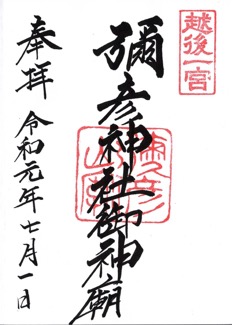 越後一宮
彌彦神社御神廟
奉拝 令和元年七月一日